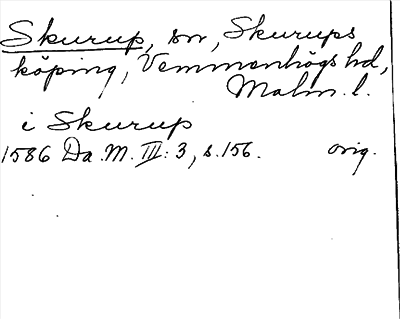 Skurup, sn, Skurups
köping, Vemmenhögs hd,
Malm. l.
i Skurup
1586 Da. M. III: 3, s. 156. orig.